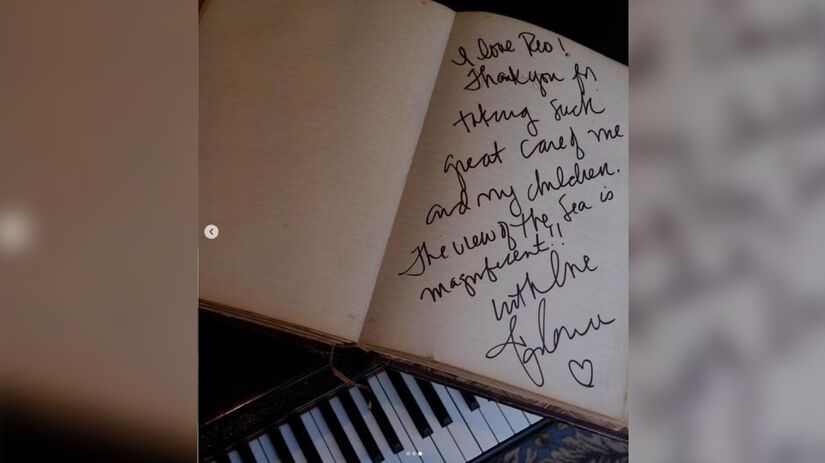 I love Rio!
Thank you for
taking such
great care of me
and my children.
The view of the Sea is
magnificent!!
with love